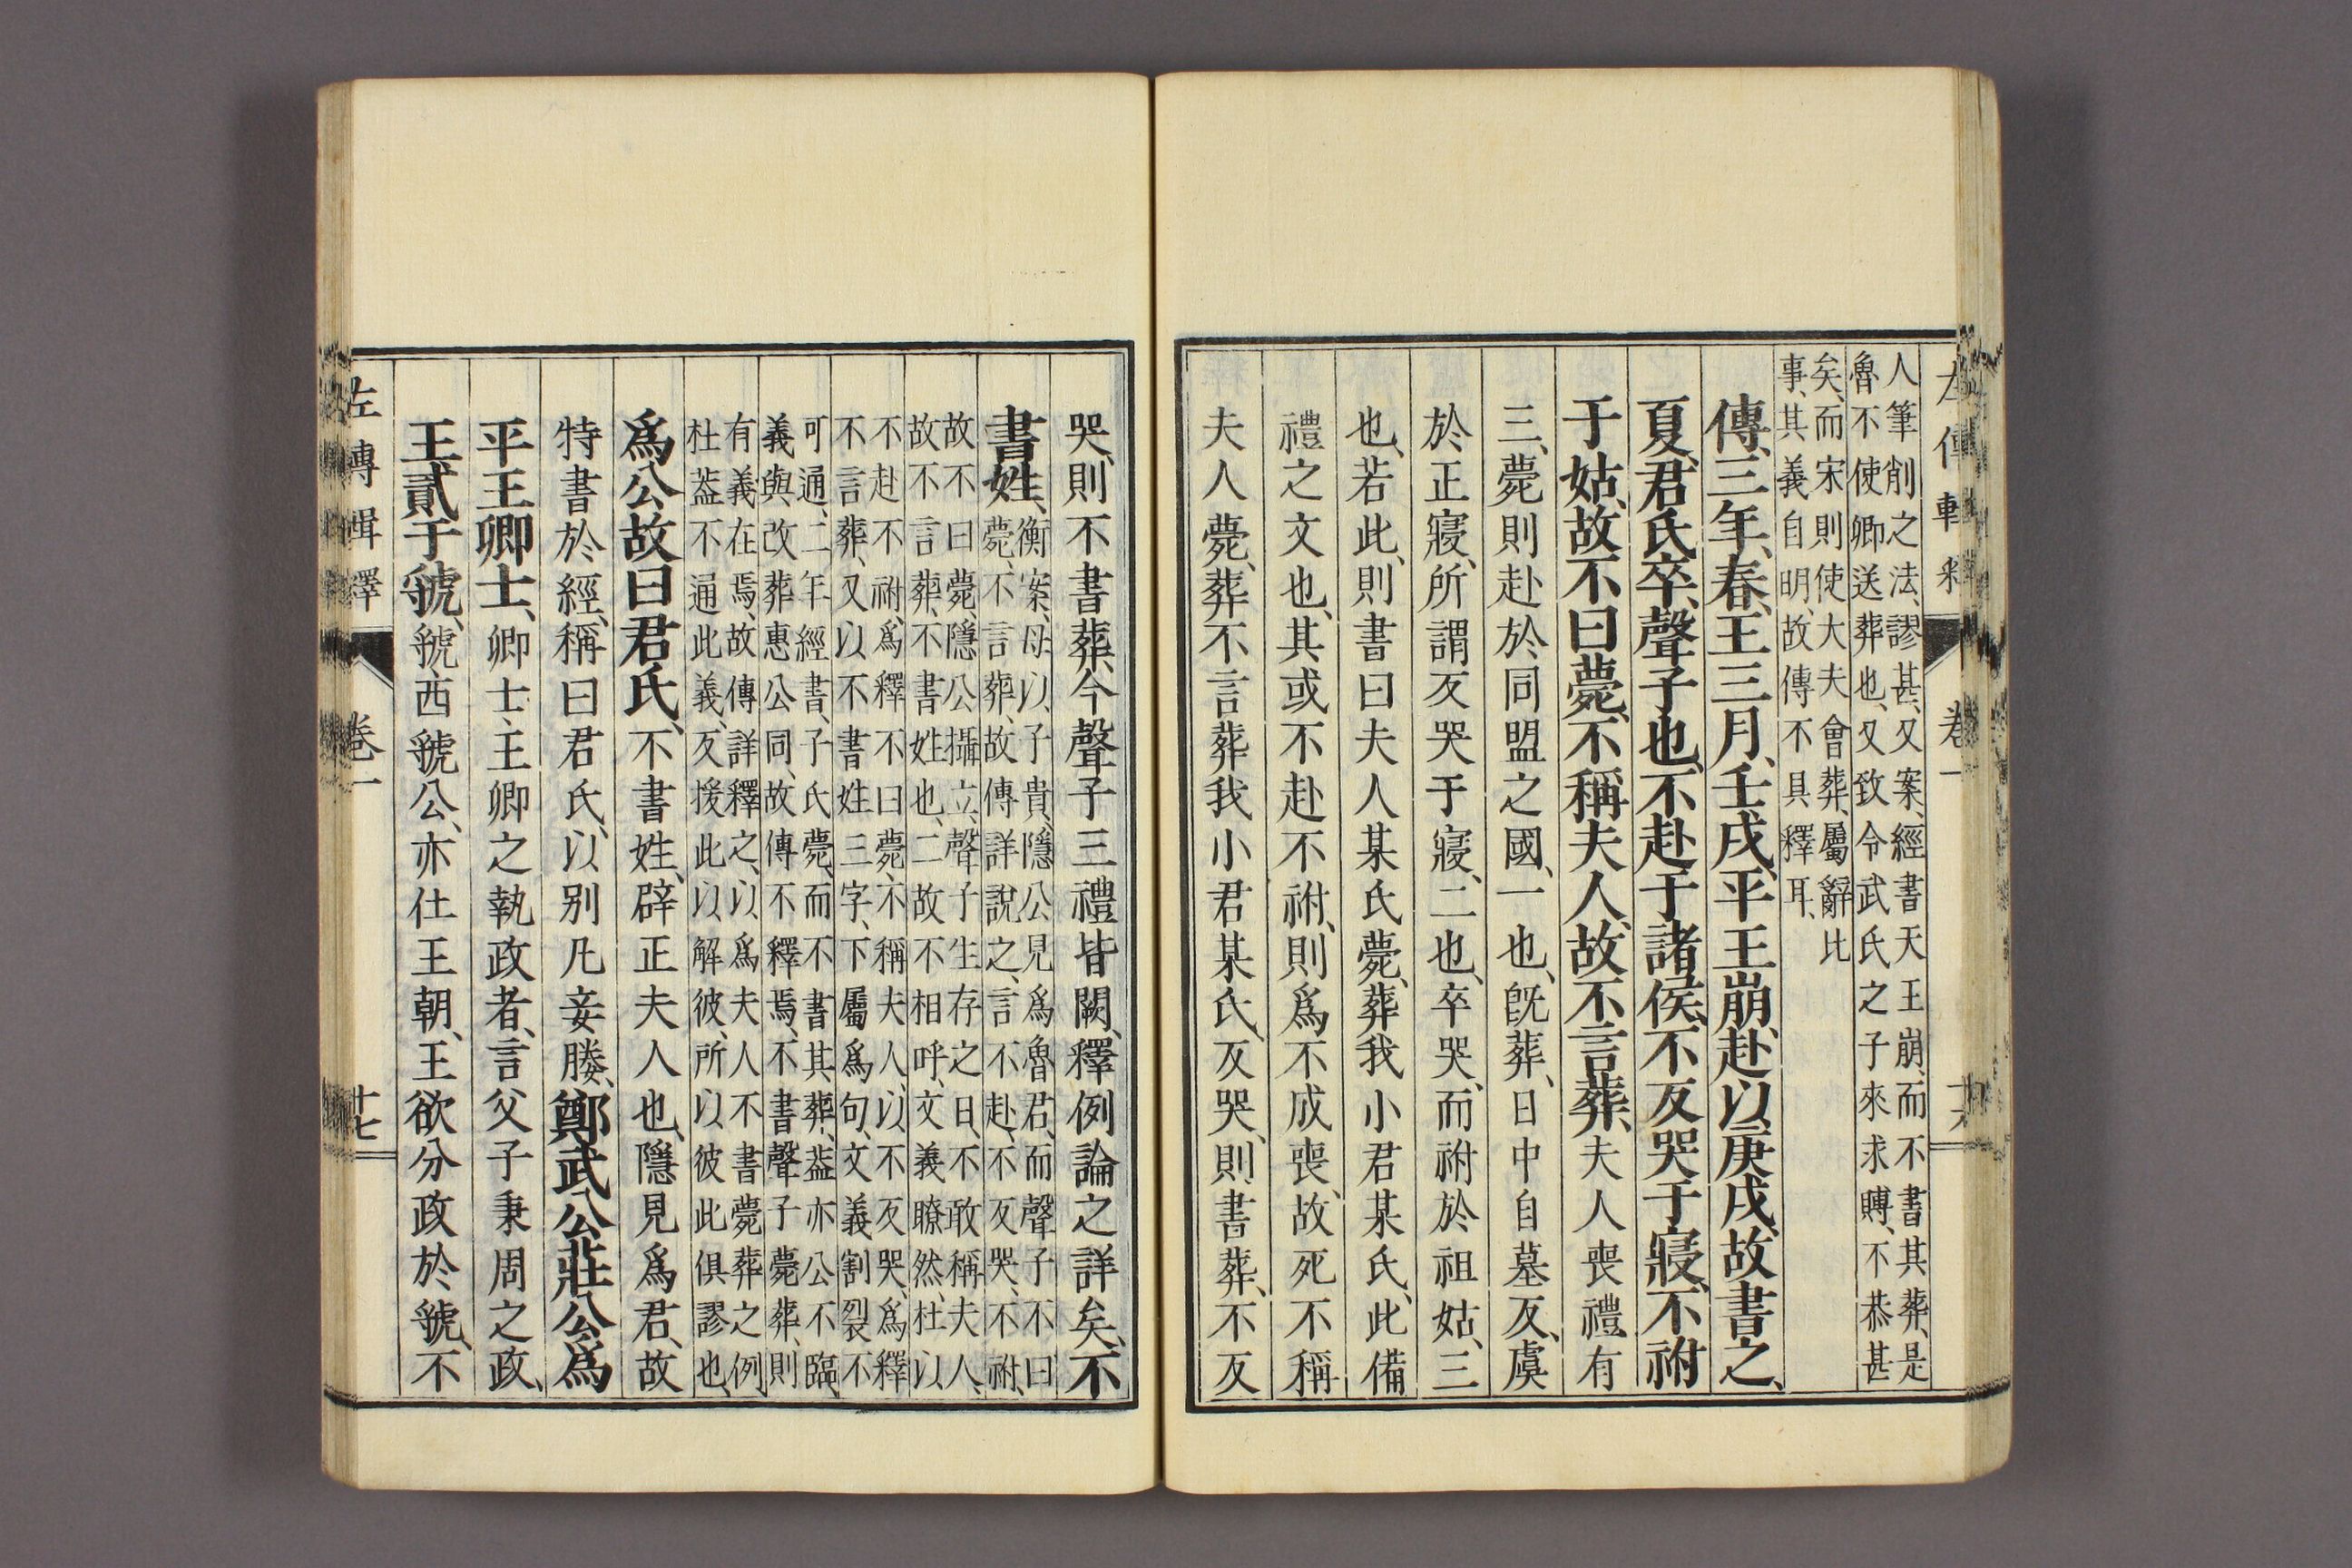 人筆削之法、謬甚、又案、經書天王崩、而不書其葬、是
魯不使卿送葬也、又致令武氏之子來求賻、不恭甚
矣、而宋則使大夫會葬、屬辭比
事、其義自明、故傳不具釋耳、
傳、三年、春、王三月、壬戌、平王崩、赴以庚戌、故書之、
夏、君氏卒、聲子也、不赴于諸侯、不反哭于寢、不祔
于姑、故不曰薨、不稱夫人、故不言葬、夫人喪禮有
三、薨則赴於同盟之國、一也、旣葬、日中自墓反、虞
於正寢、所謂反哭于寢、二也、卒哭、而祔於祖姑、三
也、若此、則書曰夫人某氏薨、葬我小君某氏、此備
禮之文也、其或不赴不祔、則爲不成喪、故死不稱
夫人薨、葬不言葬我小君某氏、反哭、則書葬、不反
哭、則不書葬、今聲子三禮皆闕、釋例論之詳矣、不
書姓、衡案、母以子貴、隱公見爲魯君、而聲子不曰
薨、不言葬、故傳詳說之、言不赴、不反哭、不祔、
故不曰薨、隱公攝立、聲子生存之日、不敢稱夫人、
故不言葬、不書姓也、二故不相呼、文義瞭然、杜以
不赴不祔、爲釋不曰薨、不稱夫人、以不反哭、爲釋
不言葬、又以不書姓三字、下屬爲句、文義割裂不
可通、二年經書、子氏薨、而不書其葬、蓋亦公不臨、
義與改葬惠公同、故傳不釋焉、不書聲子薨葬、則
有義在焉、故傳詳釋之、以爲夫人不書薨葬之例、
杜蓋不通此義、反援此以解彼、所以彼此俱謬也、
爲公故曰君氏、不書姓、辟正夫人也、隱見爲君、故
特書於經、稱曰君氏、以別凡妾媵、鄭武公莊公爲
平王卿士、卿士、王卿之執政者、言父子秉周之政、
王貳于虢、虢、西虢公、亦仕王朝、王欲分政於虢、不
左傳輯釋 卷一 十七